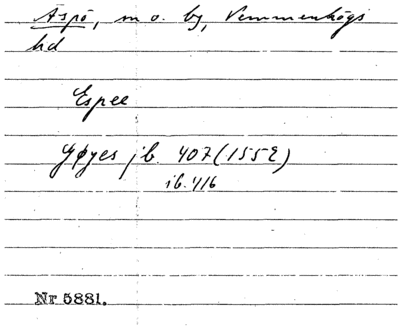 Äspö, m o. by, Vemmenhögs
hd
Espee
Gøyes jb. 407 (1552)
ib. 416
Nr 5881.